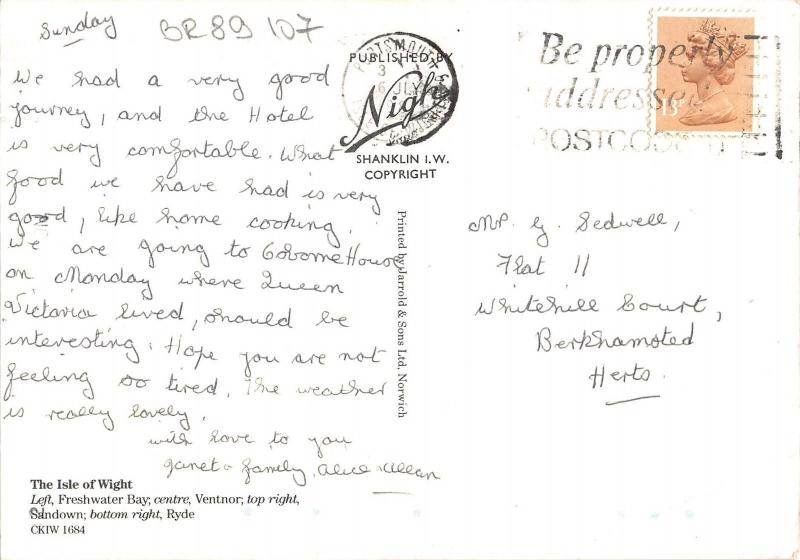 Sunday
BR89 107
We had a very good
journey, and the Hotel
is very comfortable. What
food we have had is very
good, like home cooking.
We are going to Osborne House
on Monday where Queen
Victoria lived, should be
interesting. Hope you are not
feeling so tired. The weather
is really lovely.
with love to you
Janet & family, Alice & Allan
The Isle of Wight
Left, Freshwater Bay; centre, Ventnor; top right,
Sandown; bottom right, Ryde
CKIW 1684
PUBLISHED BY
Nigh
SHANKLIN I.W.
COPYRIGHT
PORTSMOUTH
JLY
Printed by Jarrold & Sons Ltd, Norwich
Be properly
addressed
13P
Mr. G. Sedwell,
Flat 11
Whitehill Court,
Berkhamsted
Herts.